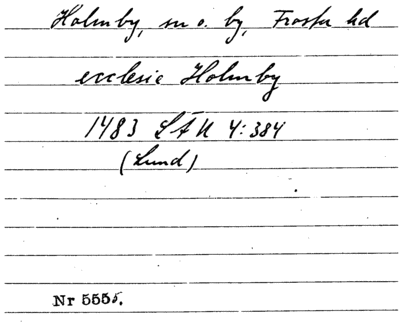 Holmby, sn o. by, Frosta hd
ecclesie Holmby
1483 LÄU 4:384
(Lund)
Nr 5555.